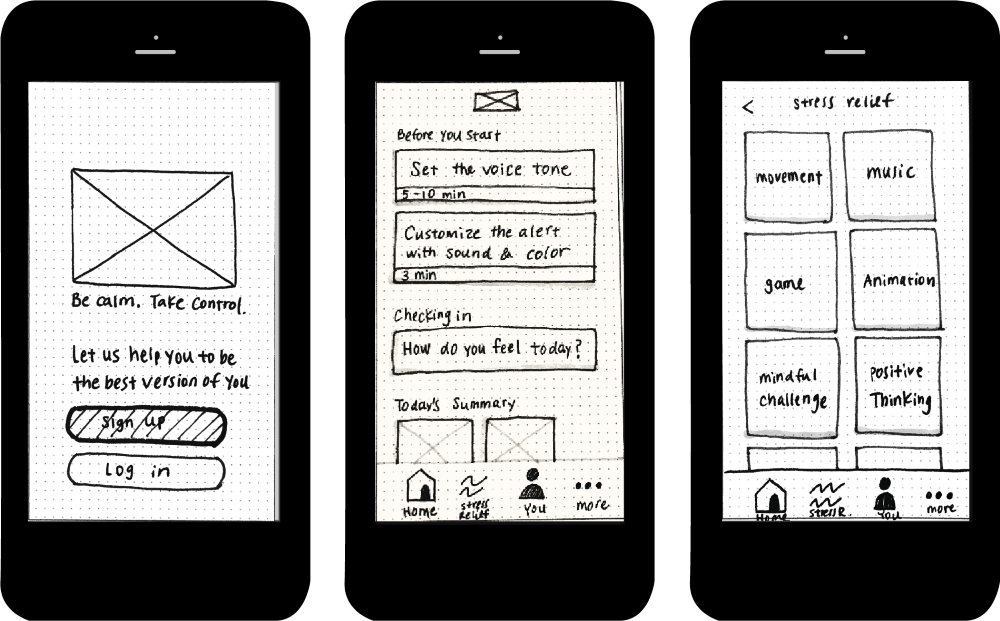 Be calm. Take Control.
Let us help you to be
the best version of You
Sign up
Log in
Before You Start
Set the voice tone
5-10 min
Customize the alert
with sound & color
3 min
Checking in
How do you feel today?
Today's Summary
Home
stress
Relief
You
more
< stress relief
movement
music
game
Animation
mindful
challenge
positive
Thinking
Home
stress R.
You
more